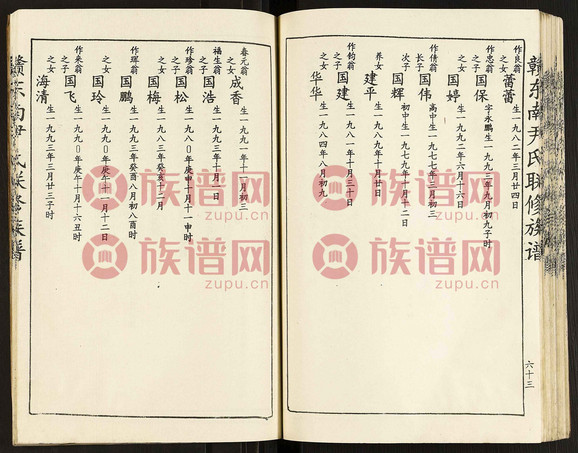 赣东南尹氏联修族谱
六十三
作良翁之女 蕾蕾 生一九八二年三月廿四日
作忠翁之子 国保 字永鹏生一九九三年九月初九子时
之女 国婷 生一九九二年六月十六日
作倩翁长子 国伟 高中生一九七七年三月初三
次子 国辉 初中生一九七九年十月十二日
养女 建平 生一九八一年十月
作钧翁之子 国建 生一九八一年十月三十日
之女 华华 生一九八四年八月初九
春元翁之女 成香 生一九九一年十一月初三
福生翁之子 国浩 生一九九三年十月二日
作珍翁之子 国松 生一九八〇年庚申十月十一申时
之女 国梅 生一九八三年癸亥十二月
作珲翁 国鹏 生一九九三年癸酉八月初八酉时
之女 国玲 生一九九〇年庚午十一月十二日
作来翁之子 国飞 生一九九〇年庚午十月十六丑时
之女 海清 生一九九三年二月廿三子时
族谱网
zupu.cn
族谱网
zupu.cn
族谱网
zupu.cn
族谱网
zupu.cn